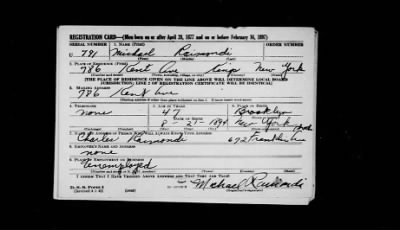 REGISTRATION CARD—(Men born on or after April 28, 1877 and on or before February 16, 1897)
SERIAL NUMBER 1. NAME (Print) ORDER NUMBER
U 791 Michael Raimondi
2. PLACE OF RESIDENCE (Print)
786 Kent Ave Kings New York
[THE PLACE OF RESIDENCE GIVEN ON THE LINE ABOVE WILL DETERMINE LOCAL BOARD
JURISDICTION; LINE 2 OF REGISTRATION CERTIFICATE WILL BE IDENTICAL]
3. MAILING ADDRESS
786 Kent Ave
4. TELEPHONE 5. AGE IN YEARS 6. PLACE OF BIRTH
none 47 Brooklyn
DATE OF BIRTH
8 - 21 - 1894 New York
7. NAME AND ADDRESS OF PERSON WHO WILL ALWAYS KNOW YOUR ADDRESS
Charles Raimondi 692 Franklin Ave
8. EMPLOYER'S NAME AND ADDRESS
none
9. PLACE OF EMPLOYMENT OR BUSINESS
Unemployed
I AFFIRM THAT I HAVE VERIFIED ABOVE ANSWERS AND THAT THEY ARE TRUE.
D. S. S. Form 1
Michael Raimondi